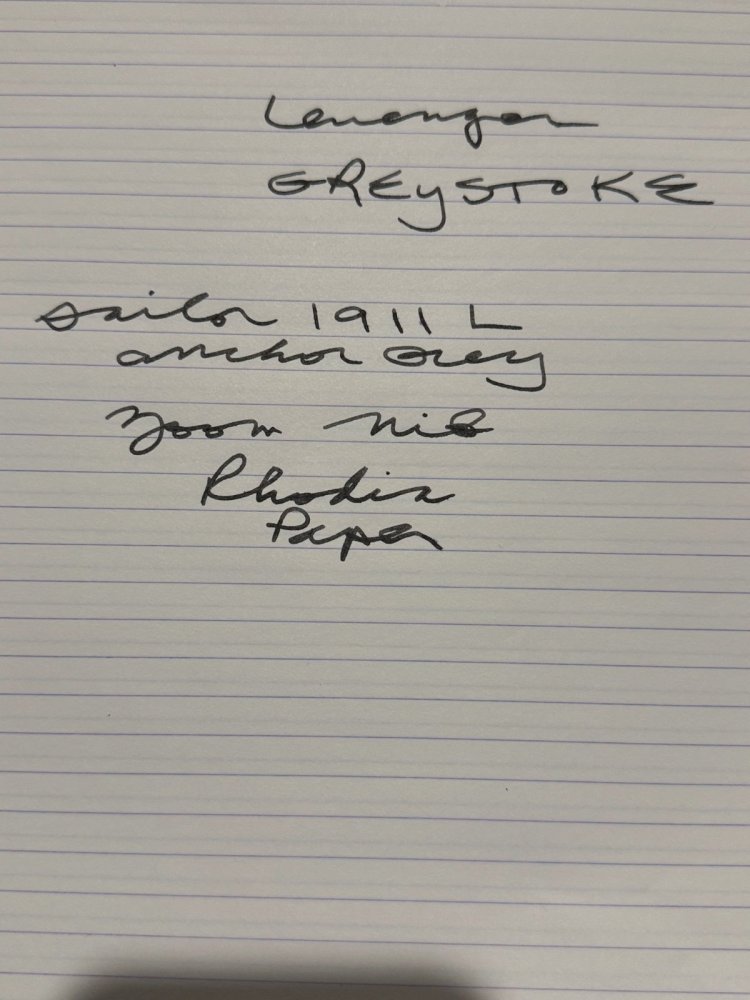 Lenengon
GREySTOKE
Sailor 1911 L
anchor Grey
Zoom Nib
Rhodia
Paper